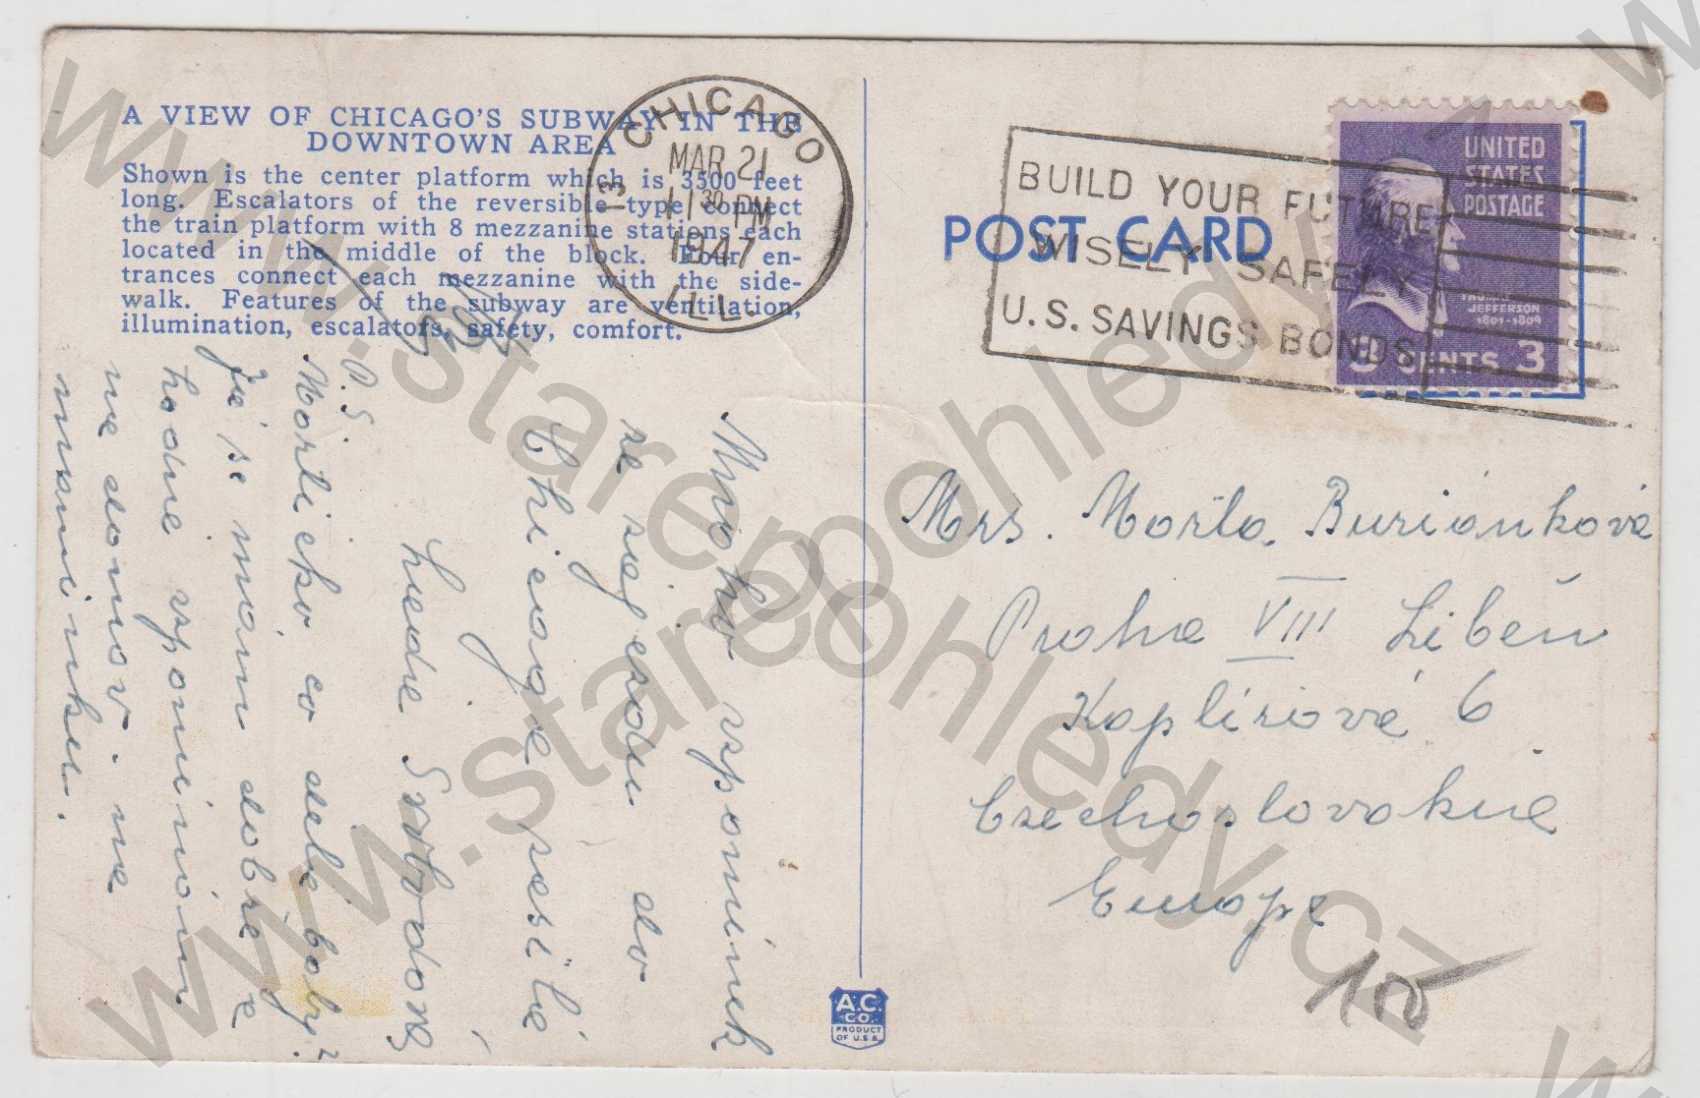 A VIEW OF CHICAGO'S SUBWAY IN THE
DOWNTOWN AREA
Shown is the center platform which is 3500 feet
long. Escalators of the reversible type connect
the train platform with 8 mezzanine stations each
located in the middle of the block. Four en-
trances connect each mezzanine with the side-
walk. Features of the subway are ventilation,
illumination, escalators, safety, comfort.
CHICAGO
13
MAR 21
11 30 PM
1947
ILL.
BUILD YOUR FUTURE
WISELY SAFELY
U.S. SAVINGS BONDS
POST CARD
UNITED
STATES
POSTAGE
JEFFERSON
1801-1809
3 CENTS 3
Mnoho vzpomínek
ze zájezdu do
Chicaga posílá
P.S.
Mařičko co dělá boby?
Já se mám dobře a
hodně vzpomínám
na domov. na
maminku.
Mrs. Mařka Buriánková
Praha VIII Libeň
Kaplířová 6
Czechoslovakia
Europe
10
A.C.
CO.
PRODUCT
OF U.S.A.
www.starepohledy.cz
www.starepohledy.cz